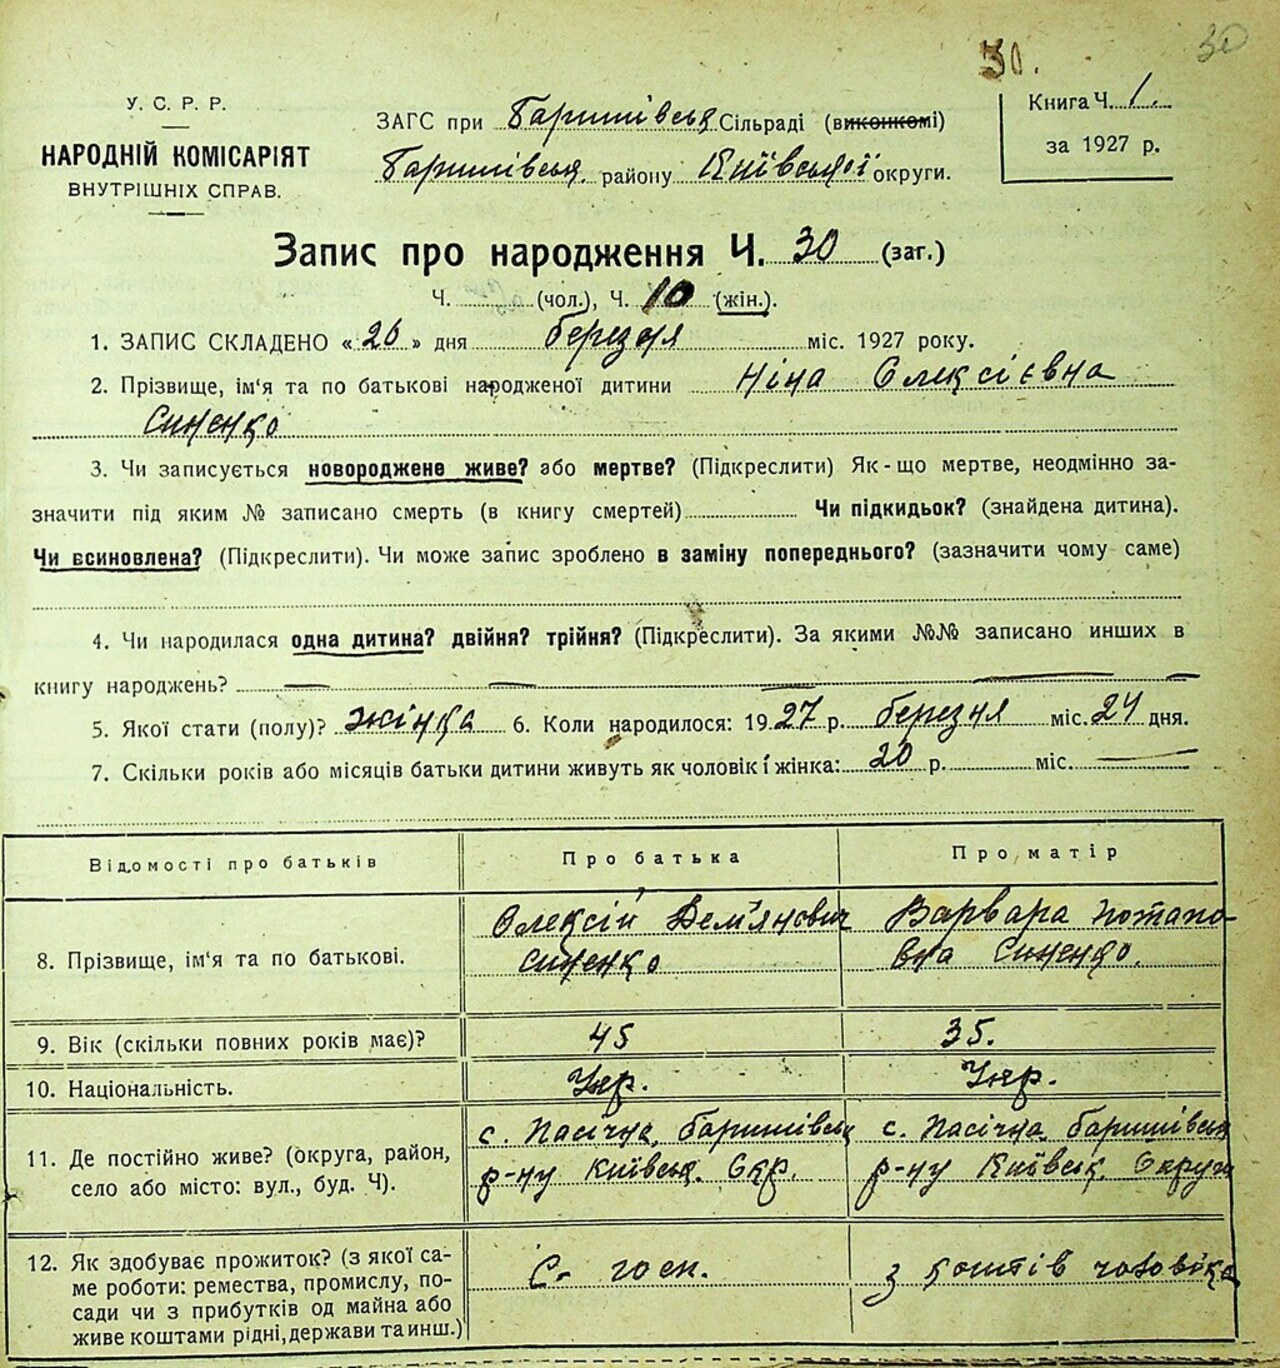 30
30.
У. С. Р. Р.
НАРОДНІЙ КОМІСАРІЯТ
ВНУТРІШНІХ СПРАВ.
ЗАГС при Баришівськ Сільраді (виконкомі)
Баришівськ. району Київської округи.
Книга Ч. 1.
за 1927 р.
Запис про народження Ч. 30 (заг.)
Ч. (чол.), Ч. 10 (жін.).
1. ЗАПИС СКЛАДЕНО «26» дня березня міс. 1927 року.
2. Прізвище, ім'я та по батькові народженої дитини Ніна Олексієвна
Синенко
3. Чи записується новороджене живе? або мертве? (Підкреслити) Як-що мертве, неодмінно за-
значити під яким № записано смерть (в книгу смертей) Чи підкидьок? (знайдена дитина).
Чи всиновлена? (Підкреслити). Чи може запис зроблено в заміну попереднього? (зазначити чому саме)
4. Чи народилася одна дитина? двійня? трійня? (Підкреслити). За якими №№ записано инших в
книгу народжень?
5. Якої стати (полу)? жінка 6. Коли народилося: 1927 р. березня міс. 24 дня.
7. Скільки років або місяців батьки дитини живуть як чоловік і жінка: 20 р. міс.
Відомості про батьків Про батька Про матір
8. Прізвище, ім'я та по батькові.
Олексій Дем'янович
Синенко
Варвара Потапо-
вна Синенко.
9. Вік (скільки повних років має)? 45 35.
10. Національність. Укр. Укр.
11. Де постійно живе? (округа, район,
село або місто: вул., буд. Ч).
с. Пасічна, Баришівськ
р-ну Київськ. Окр.
с. Пасічна, Баришівськ
р-ну Київськ. Округи
12. Як здобуває прожиток? (з якої са-
ме роботи: ремества, промислу, по-
сади чи з прибутків од майна або
живе коштами рідні, держави та инш.)
С- госп.
з коштів чоловіка